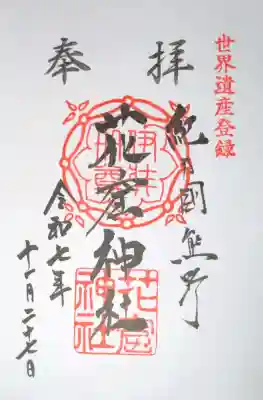 世界遺産登録
奉拝
紀の国熊野
花窟神社
令和七年
十一月二十七日
花窟
神社